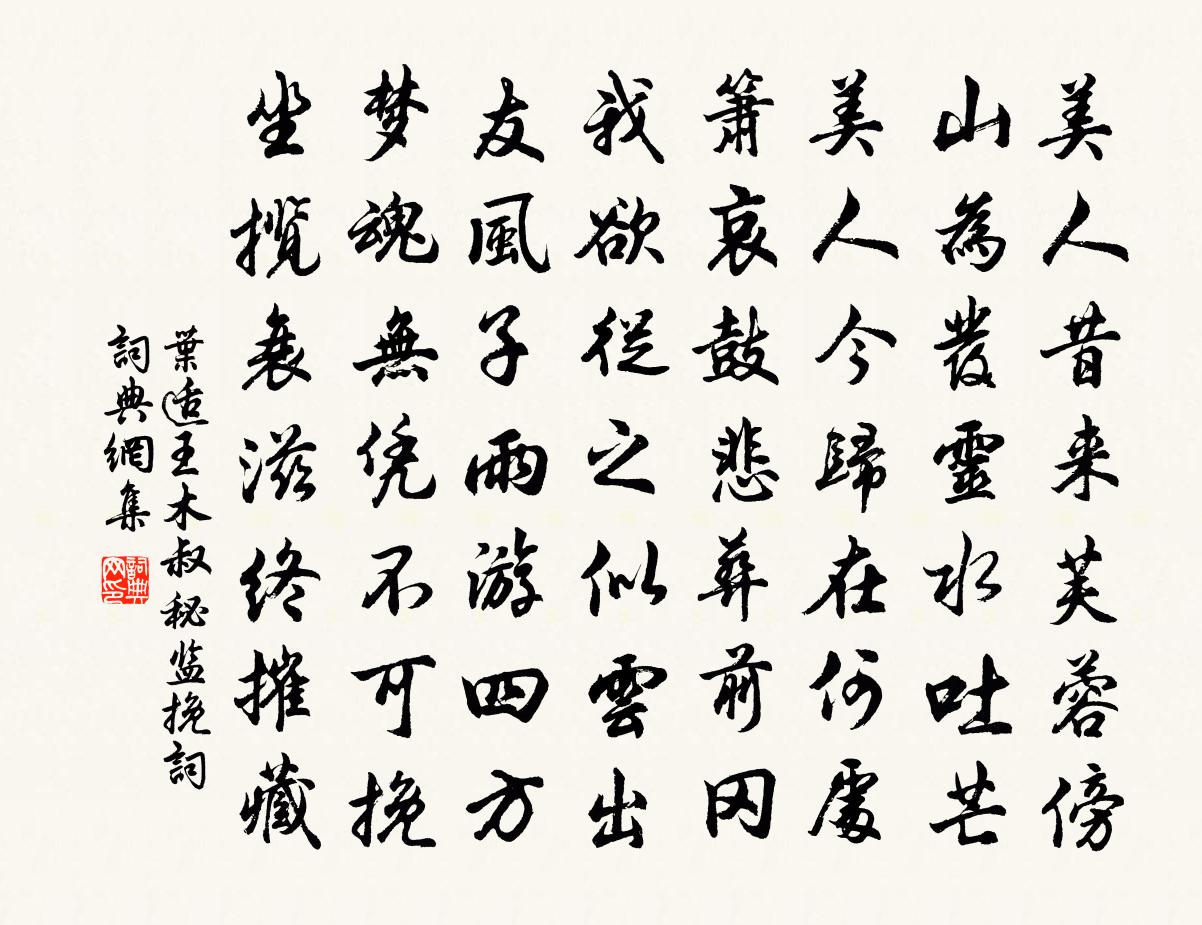 美人昔来芙蓉傍
山為發靈水吐芒
美人今歸在何處
簫哀鼓悲葬前冈
我欲從之似雲出
友風子雨游四方
梦魂無凭不可挽
坐攬衰滋终摧藏
葉适王木叔秘监挽詞
詞典網集
詞典网印